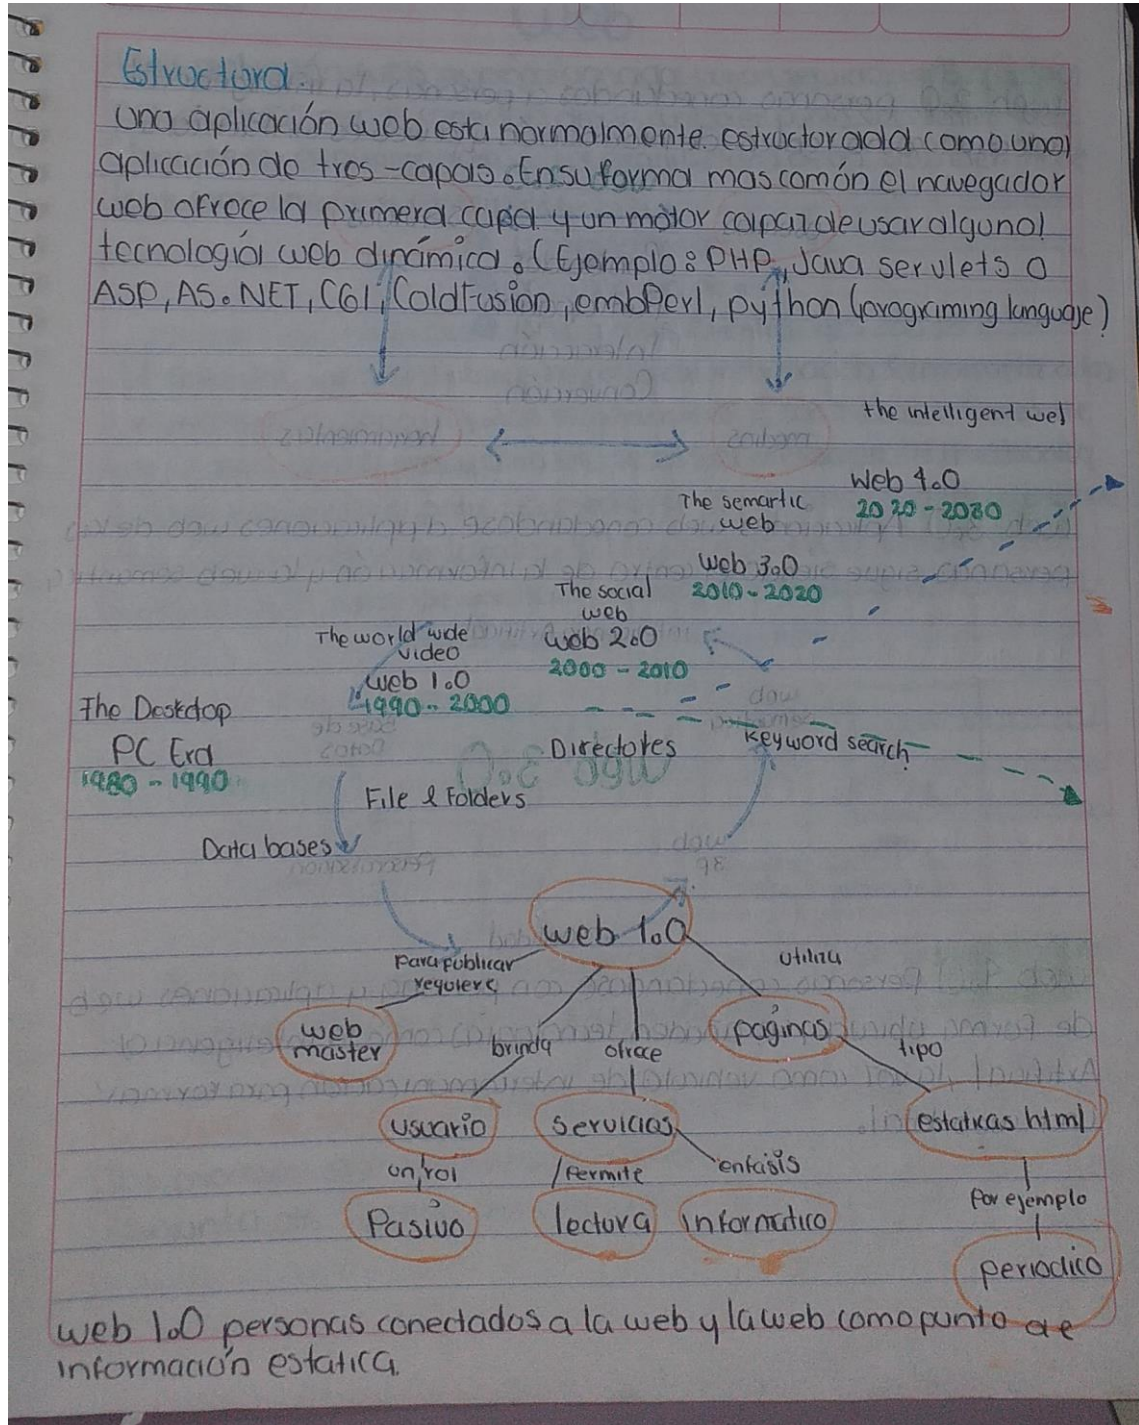 Estructura:
Una aplicación web esta normalmente estructorada como una
aplicación de tres-capas. En su forma mas común el navegador
web ofrece la primera capa y un motor capaz de usar alguna
tecnología web dinámica. (Ejemplo: PHP, Java servlets o
ASP, AS.NET, CGI, ColdFusion, embPerl, python (programing language)
the intelligent web
Web 4.0
2020-2030
The semartic
web
Web 3.0
2010-2020
The social
web
Web 2.0
2000-2010
The world wide
video
Web 1.0
1990-2000
The Desktop
PC Era
1980-1990
Directores
Keyword search
File & Folders
Data bases
web 1.0
para publicar
requiere
utiliza
web
master
brinda
ofrece
páginas
tipo
usuario
servicios
estaticas html
un rol
permite
enfasis
por ejemplo
Pasivo
lectura
informatico
periodico
web 1.0 personas conectados a la web y la web como punto de
información estatica.